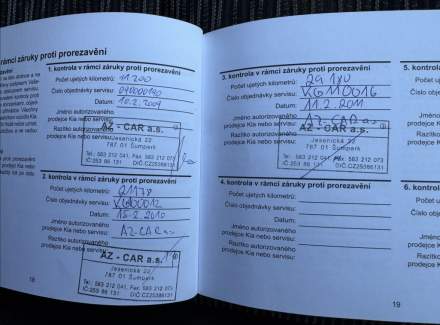 rámci záruky proti prorezavění
1. kontrola v rámci záruky proti prorezavění
Počet ujetých kilometrů: 11 200
Číslo objednávky servisu:
Datum: 10.2.2009
Jméno autorizovaného
prodejce Kia nebo servisu:
Razítko autorizovaného
prodejce Kia nebo servisu:
AZ - CAR a.s.
Jesenická 22
787 01 Šumperk
Tel.: 583 212 041, Fax: 583 212 073
IČ:253 86 131 DIČ:CZ25386131
2. kontrola v rámci záruky proti prorezavění
Počet ujetých kilometrů:
Číslo objednávky servisu:
Datum: 15.2.2010
Jméno autorizovaného
prodejce Kia nebo servisu: AZ-CAR a.s.
Razítko autorizovaného
prodejce Kia nebo servisu:
AZ - CAR a.s.
Jesenická 22
787 01 Šumperk
Tel.: 583 212 041, Fax: 583 212 073
IČ:253 86 131 DIČ:CZ25386131
18
3. kontrola v rámci záruky proti prorezavění
Počet ujetých kilometrů: 29 180
Číslo objednávky servisu: XG110016
Datum: 11.2.2011
Jméno autorizovaného
prodejce Kia nebo servisu: AZ-CAR a.s.
Razítko autorizovaného
prodejce Kia nebo servisu:
AZ - CAR a.s.
Jesenická 22
787 01 Šumperk
Tel.: 583 212 041, Fax: 583 212 073
IČ:253 86 131 DIČ:CZ25386131
4. kontrola v rámci záruky proti prorezavění
Počet ujetých kilometrů:
Číslo objednávky servisu:
Datum:
Jméno autorizovaného
prodejce Kia nebo servisu:
Razítko autorizovaného
prodejce Kia nebo servisu:
19
5. kontrola v
Počet
Číslo obje
prodejce
R
prodejce
6. kontr
Po
Číslo o
prodej
prode